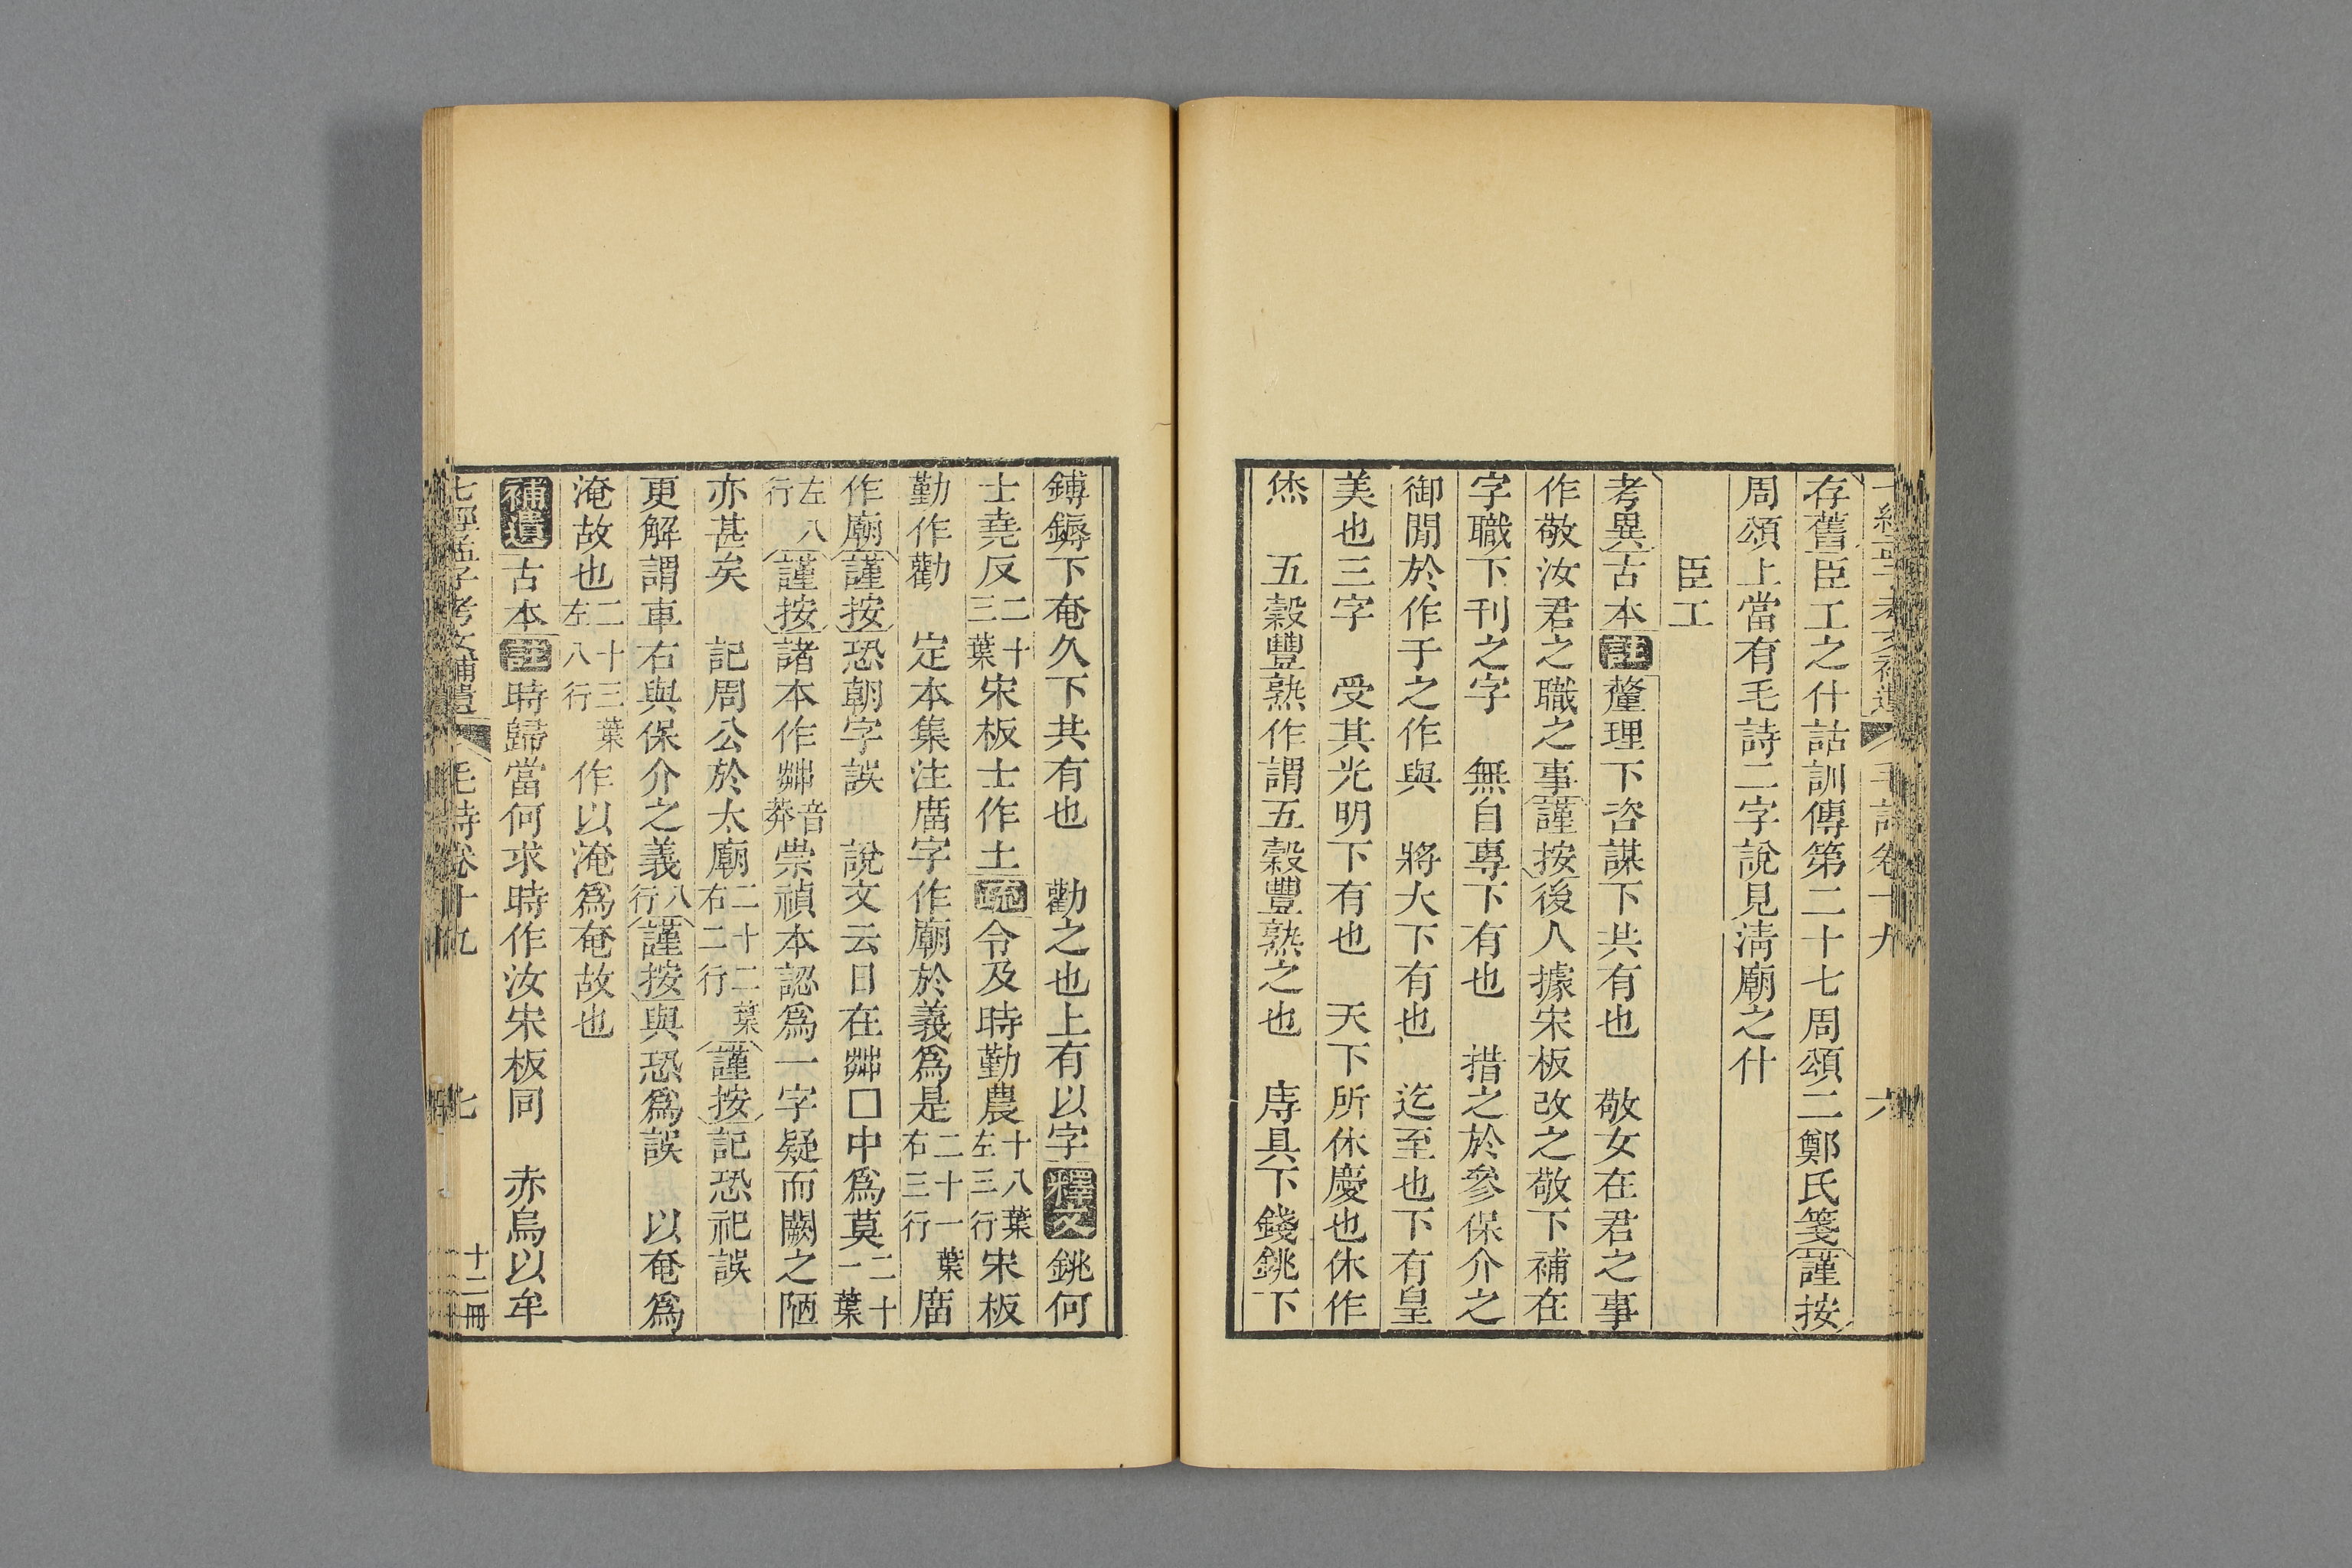 七經孟子考文補遺 毛詩卷十九 六
存舊臣工之什詁訓傳第二十七周頌二鄭氏箋謹按
周頌上當有毛詩二字說見淸廟之什
臣工
考異古本註釐理下咨謀下共有也 敬女在君之事
作敬汝君之職之事謹按後人據宋板改之敬下補在
字職下刊之字 無自專下有也 措之於參保介之
御閒於作于之作與 將大下有也 迄至也下有皇
美也三字 受其光明下有也 天下所休慶也休作
烋 五穀豐熟作謂五穀豐熟之也 庤具下錢銚下
鎛鎒下奄久下共有也 勸之也上有以字釋文銚何
士堯反二十三葉宋板士作土疏令及時勤農十八葉左三行宋板
勤作勸 定本集注庿字作廟於義爲是二十一葉右三行庿
作廟謹按恐朝字誤 說文云日在茻□中爲莫二十一葉
左八行謹按諸本作茻音莽崇禎本認爲一字疑而闕之陋
亦甚矣 記周公於太廟二十二葉右二行謹按記恐祀誤
更解謂車右與保介之義八行謹按與恐爲誤 以奄爲
淹故也二十三葉左八行作以淹爲奄故也
補遺古本註時歸當何求時作汝宋板同 赤烏以牟
七經孟子考文補遺 毛詩卷十九 七 十二冊